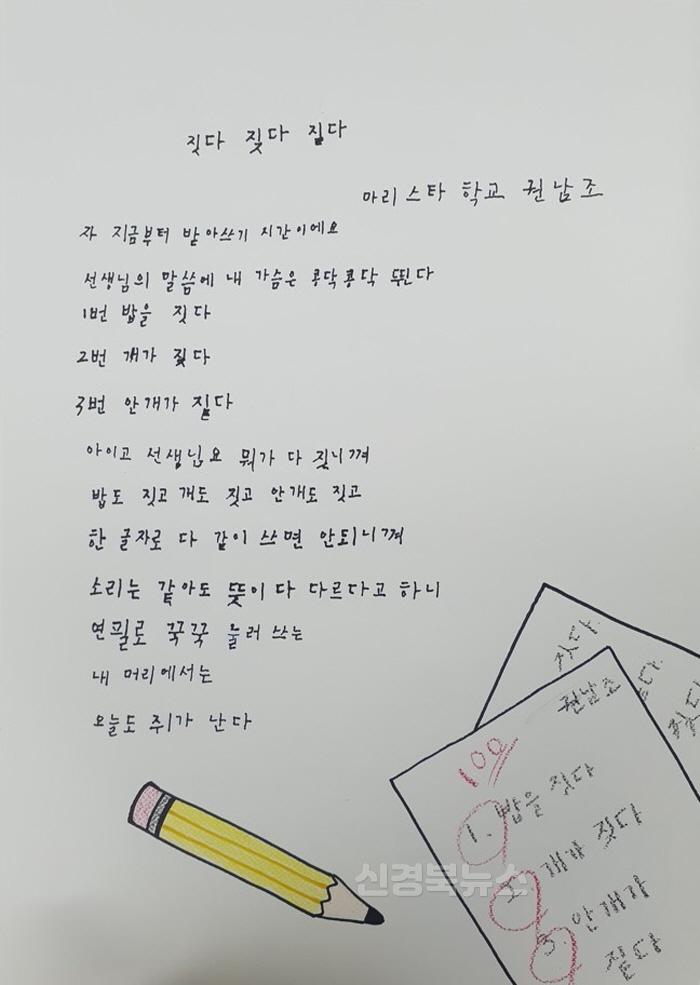 짓다 짖다 짙다
마리스타 학교 권남조
자 지금부터 받아쓰기 시간이에요
선생님의 말씀에 내 가슴은 콩닥콩닥 뛴다
1번 밥을 짓다
2번 개가 짖다
3번 안개가 짙다
아이고 선생님요 뭐가 다 짖니껴
밥도 짓고 개도 짖고 안개도 짓고
한 글자로 다 같이 쓰면 안되니껴
소리는 같아도 뜻이 다 다르다고 하니
연필로 꾹꾹 눌러 쓰는
내 머리에서는
오늘도 쥐가 난다
짓다.
권남조
100
1. 밥을 짓다
2. 개가 짖다
3. 안개가
짙다
신경북뉴스